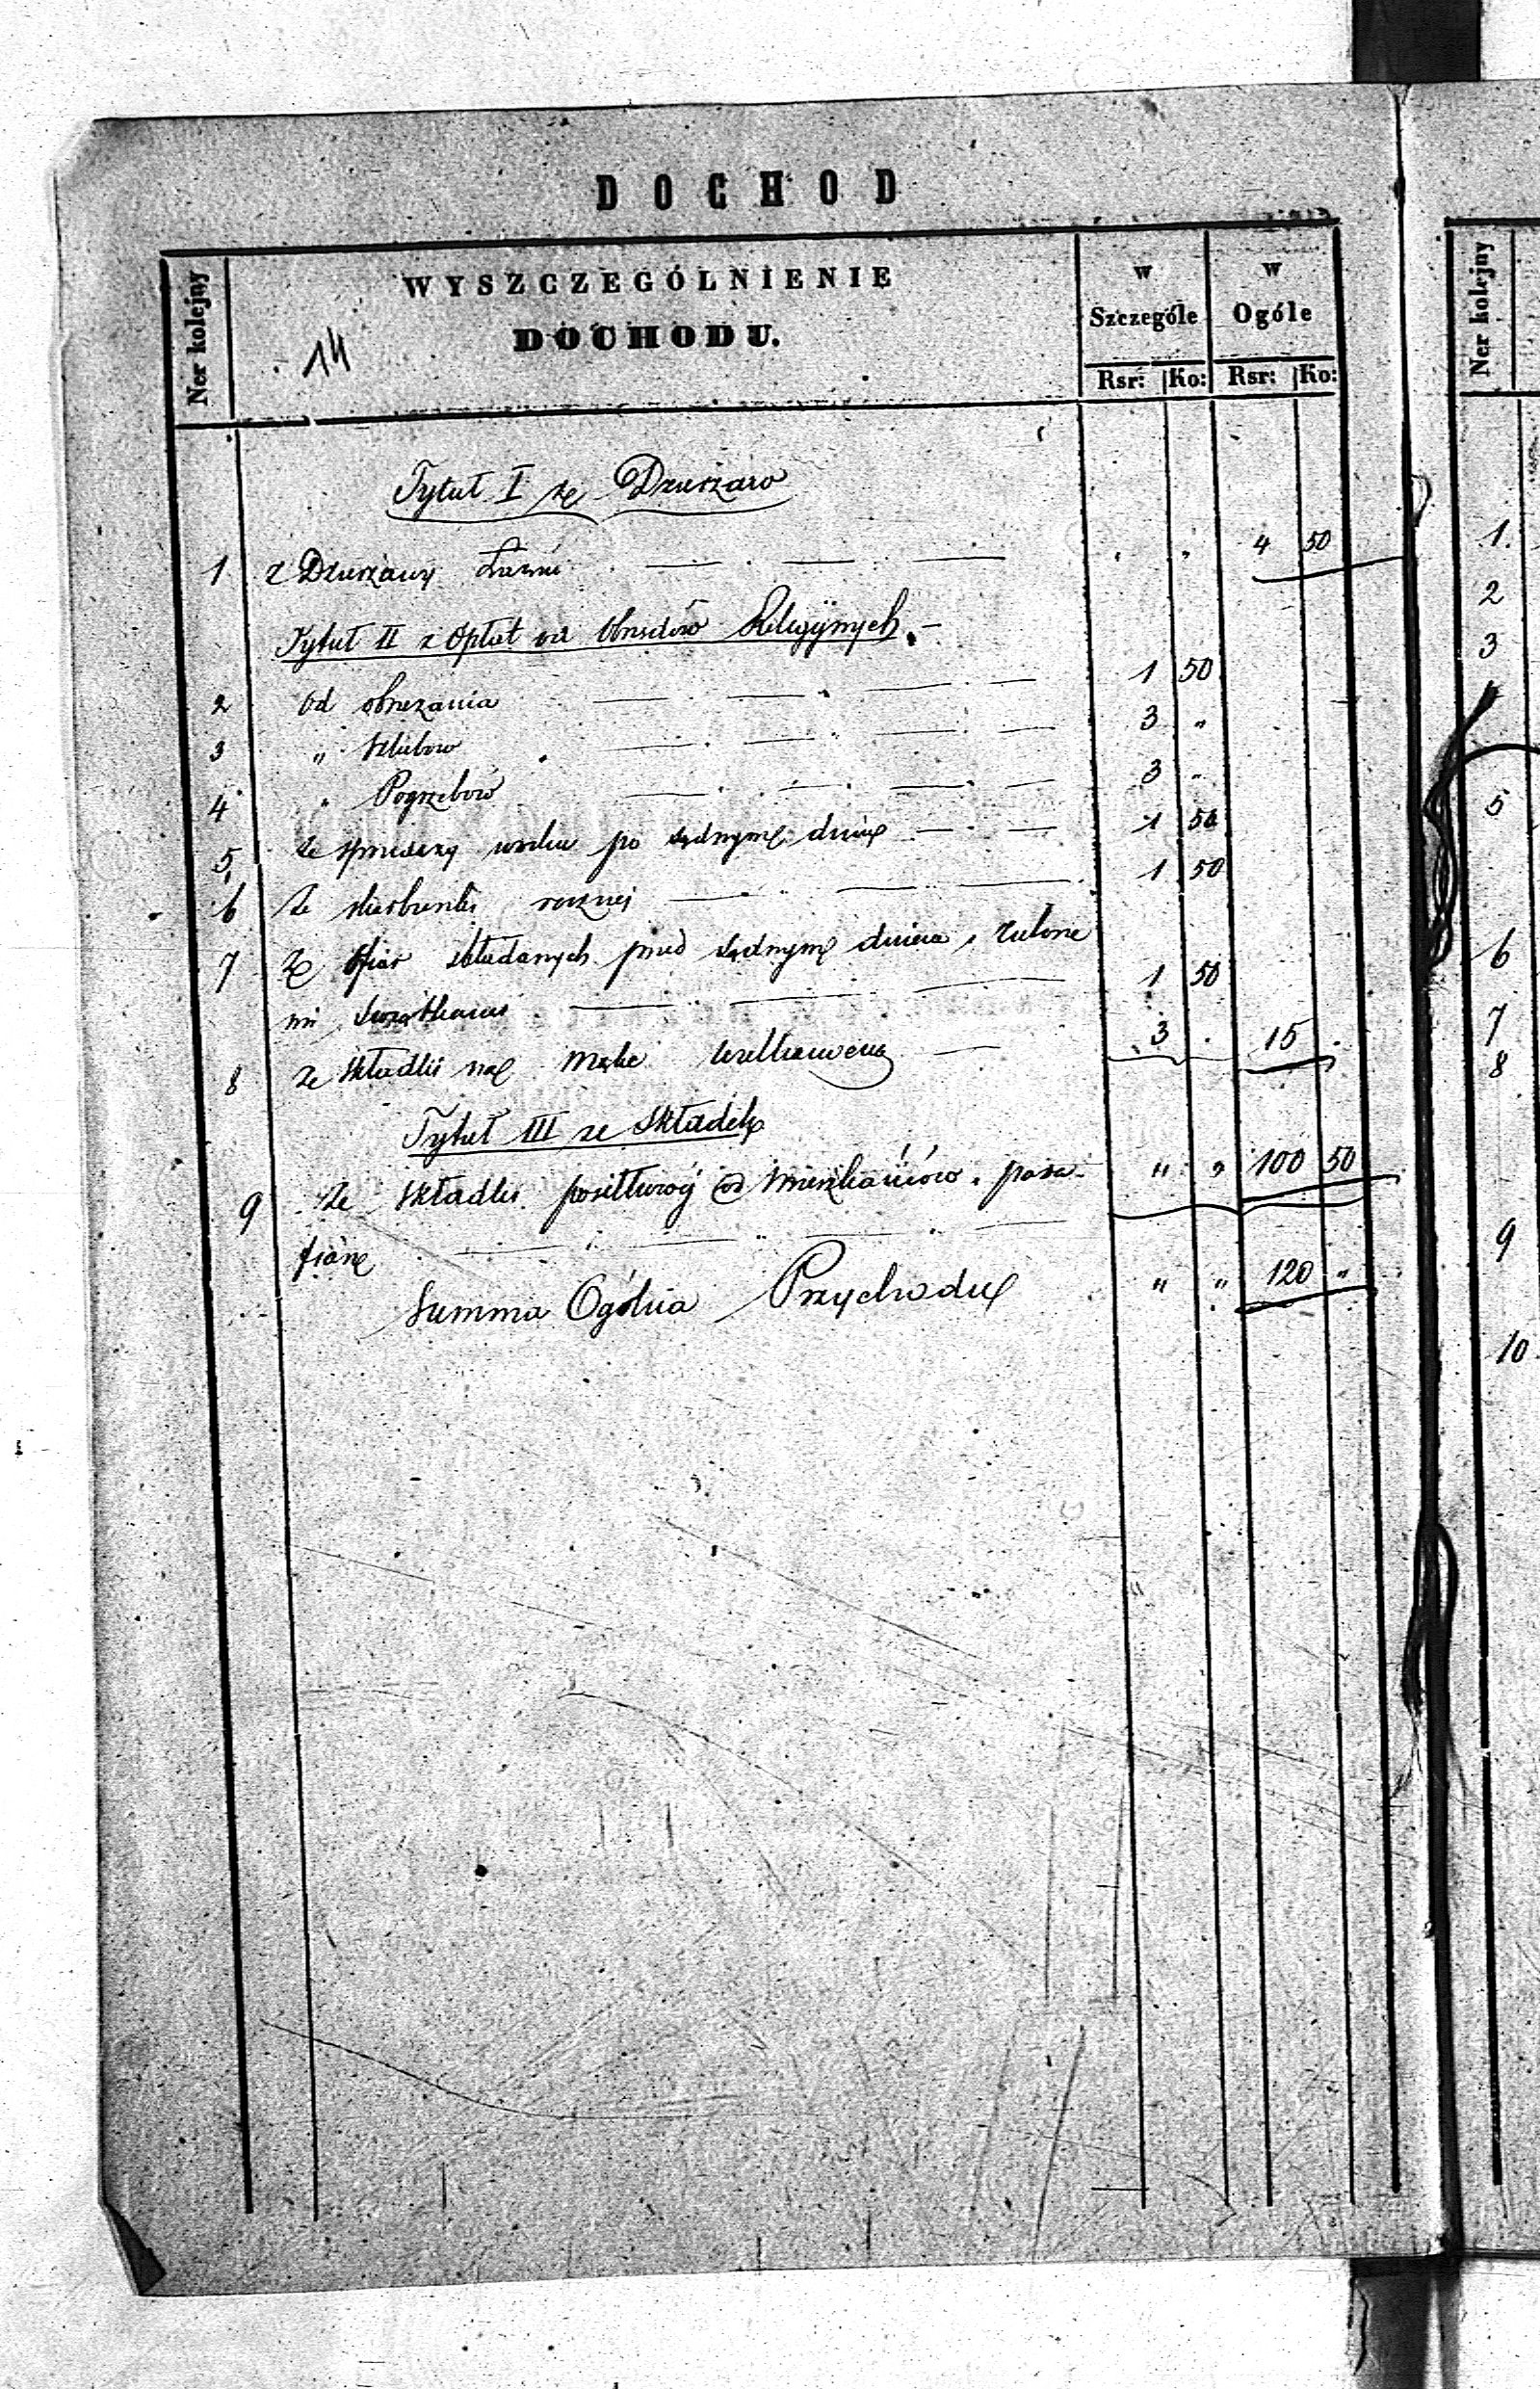 DOCHOD
Ner kolejny
WYSZCZEGÓLNIENIE
DOCHODU.
14
w Szczególe
w Ogóle
Rsr: Ko: Rsr: Ko:
Tytuł I ze Dzierżaw
1 z Dzierżawy Łaźni " " 4 50
Tytuł II z Opłat od Obrzędów Religijnych
2 Od obrzezania 1 50
3 " Szlubow 3 "
4 " Pogrzebów 3 "
5 ze po sądnym dniu 1 50
6 Ze skarbonki rocznej 1 50
7 Ze Ofiar składanych przed sądnym dniem i Zielone
mi Swiątkami 1 50
8 ze składki na Mąkę wielkanocną 3 . 15 .
Tytuł III ze Składek
9 Ze Składki od Mieszkańców para- " " 100 50
fian
Summa Ogólna Przychodu " " 120 "
Ner kolejny
1.
2
3
5
6
7
8
9
10